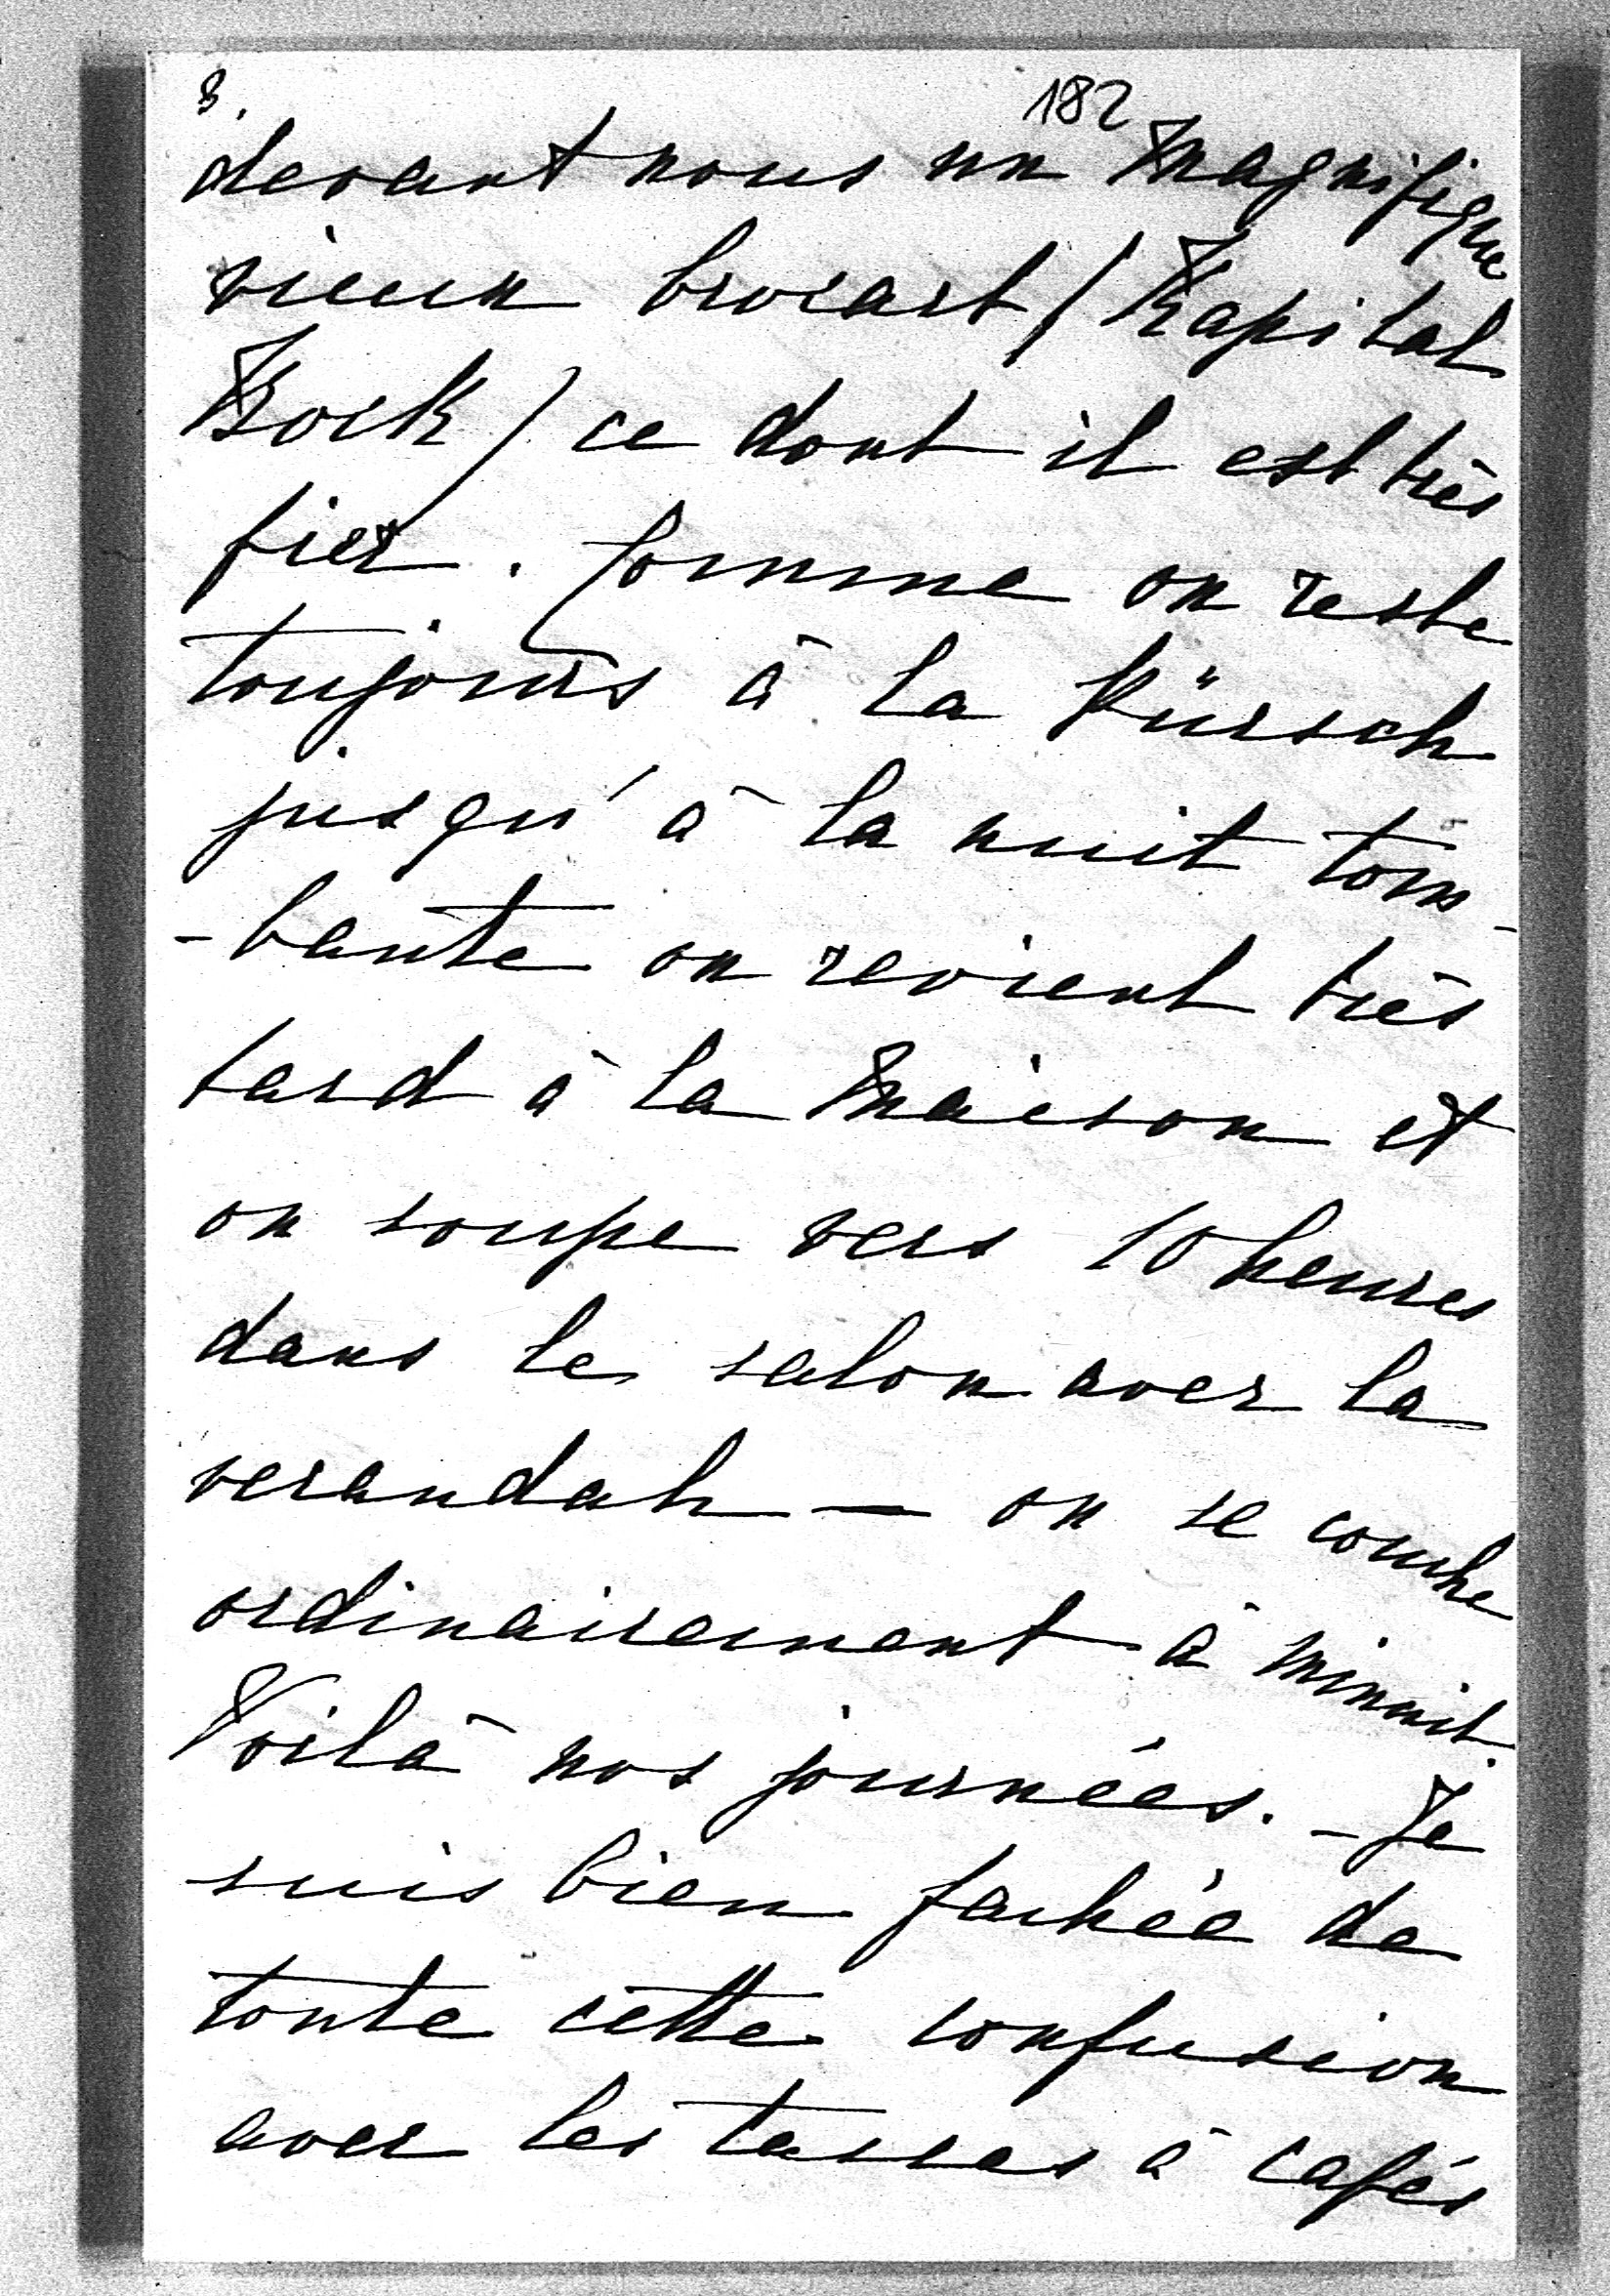 8.
182
devant nous un magnifique
vieux brocart / Kapital
Bock / ce dont il est très
fier. Comme on reste
toujours à la Pürsch
jusqu'à la nuit tom-
-bante on revient très
tard à la maison et
on soupe vers 10 heures
dans le salon avec la
verandah — on se couche
ordinairement à minuit.
Voilà nos journées. — Je
suis bien fachée de
toute cette confusion
avec les tasses à cafés